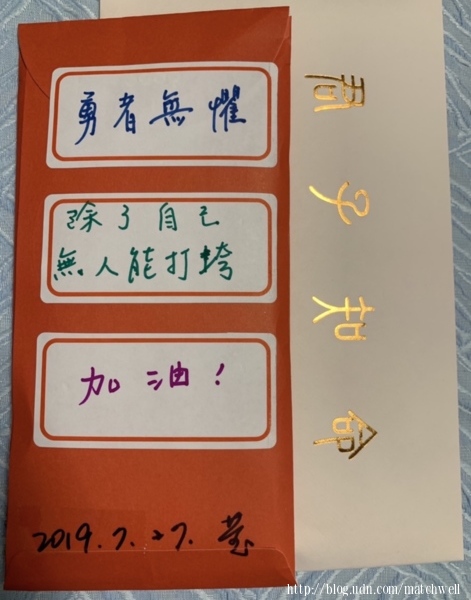 勇者無懼
除了自己
無人能打垮
加油！
2019.7.27.
君子知命
http://blog.udn.com/matchwell